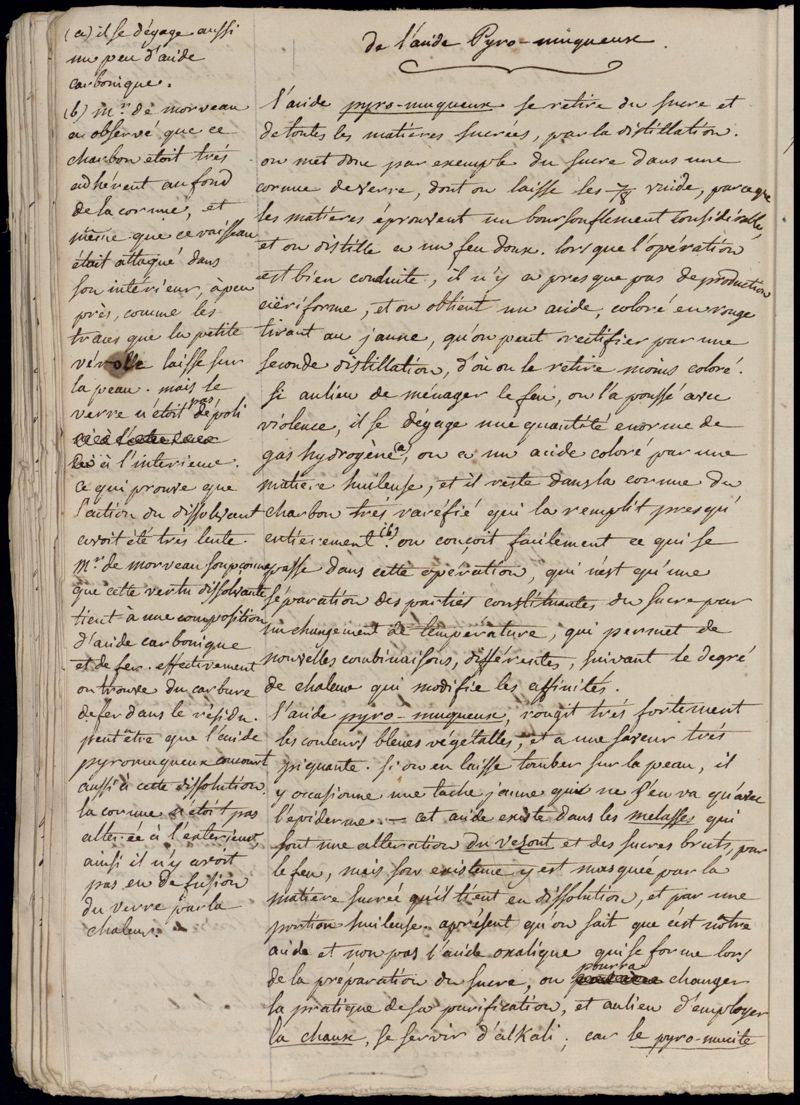 (a) il se dégage aussi
un peu d'acide
carbonique.
(b) Mr. de morveau
a observé que ce
charbon étoit trés
adhérent au fond
de la cornue, et
même que ce vaisseau
était attaqué dans
son intérieur, à peu
près, comme les
traces que la petite
vérolle laisse sur
la peau. mais le
verre n'étoit pas dépoli
à l'interieure.
ce qui prouve que
l'action du dissolvant
avoit été trés lente.
Mr. de morveau soupçonne
que cette vertu dissolvante
tient à une composition
d'acide carbonique
et de fer. effectivement
on trouve du carbure
de fer dans le résidu.
peut être que l'acide
pyromuqueux concourt
aussi à cette dissolution.
la cornue n'étoit pas
alterée à l'exterieur,
ainsi il n'y avoit
pas eu de fusion
du verre par la
chaleur.
de l'acide Pyro-muqueux
l'acide pyro-muqueux se retire du sucre et
de toutes les matiéres sucrées, par la distillation.
on met donc par exemple du sucre dans une
cornue de verre, dont on laisse les 7/8 vuide, parceque
les matiéres éprouvent un boursouflement considérable,
et on distille a un feu doux. lorsque l'opération
est bien conduite, il n'y a presque pas de production
aëriforme, et on obtient un acide, coloré en rouge
tirant au jaune, qu'on peut rectifier par une
seconde distillation, d'où on le retire moins coloré.
Si au lieu de ménager le feu, on l'a poussé avec
violence, il se dégage une quantité enorme de
gas hydrogène(a), on a un acide coloré par une
matiere huileuse, et il reste dans la cornue du
charbon trés raréfié qui la remplit presqu'
entierement(b). on conçoit facilement ce qui se
passe dans cette opération, qui n'est qu'une
séparation des parties constituantes du sucre par
un changement de température, qui permet de
nouvelles combinaisons, différentes, suivant le degré
de chaleur qui modifie les affinités.
l'acide pyro-muqueux, rougit trés fortement
les couleurs bleues végétalles, et a une saveur trés
piquante. si on en laisse tomber sur la peau, il
y occasionne une tache jaune qui ne s'en va qu'avec
l'epiderme. — cet acide existe dans les melasses qui
sont une alteration du vesout et des sucres bruts, par
le feu, mais son existence y est masquée par la
matière sucrée qu'il tient en dissolution, et par une
portion huileuse. aprésent qu'on sait que c'est nôtre
acide et non pas l'acide oxalique qui se forme lors
de la préparation du sucre, on pourra changer
la pratique de sa purification, et au lieu d'employer
la chaux, se servir d'alkali; car le pyro-mucite